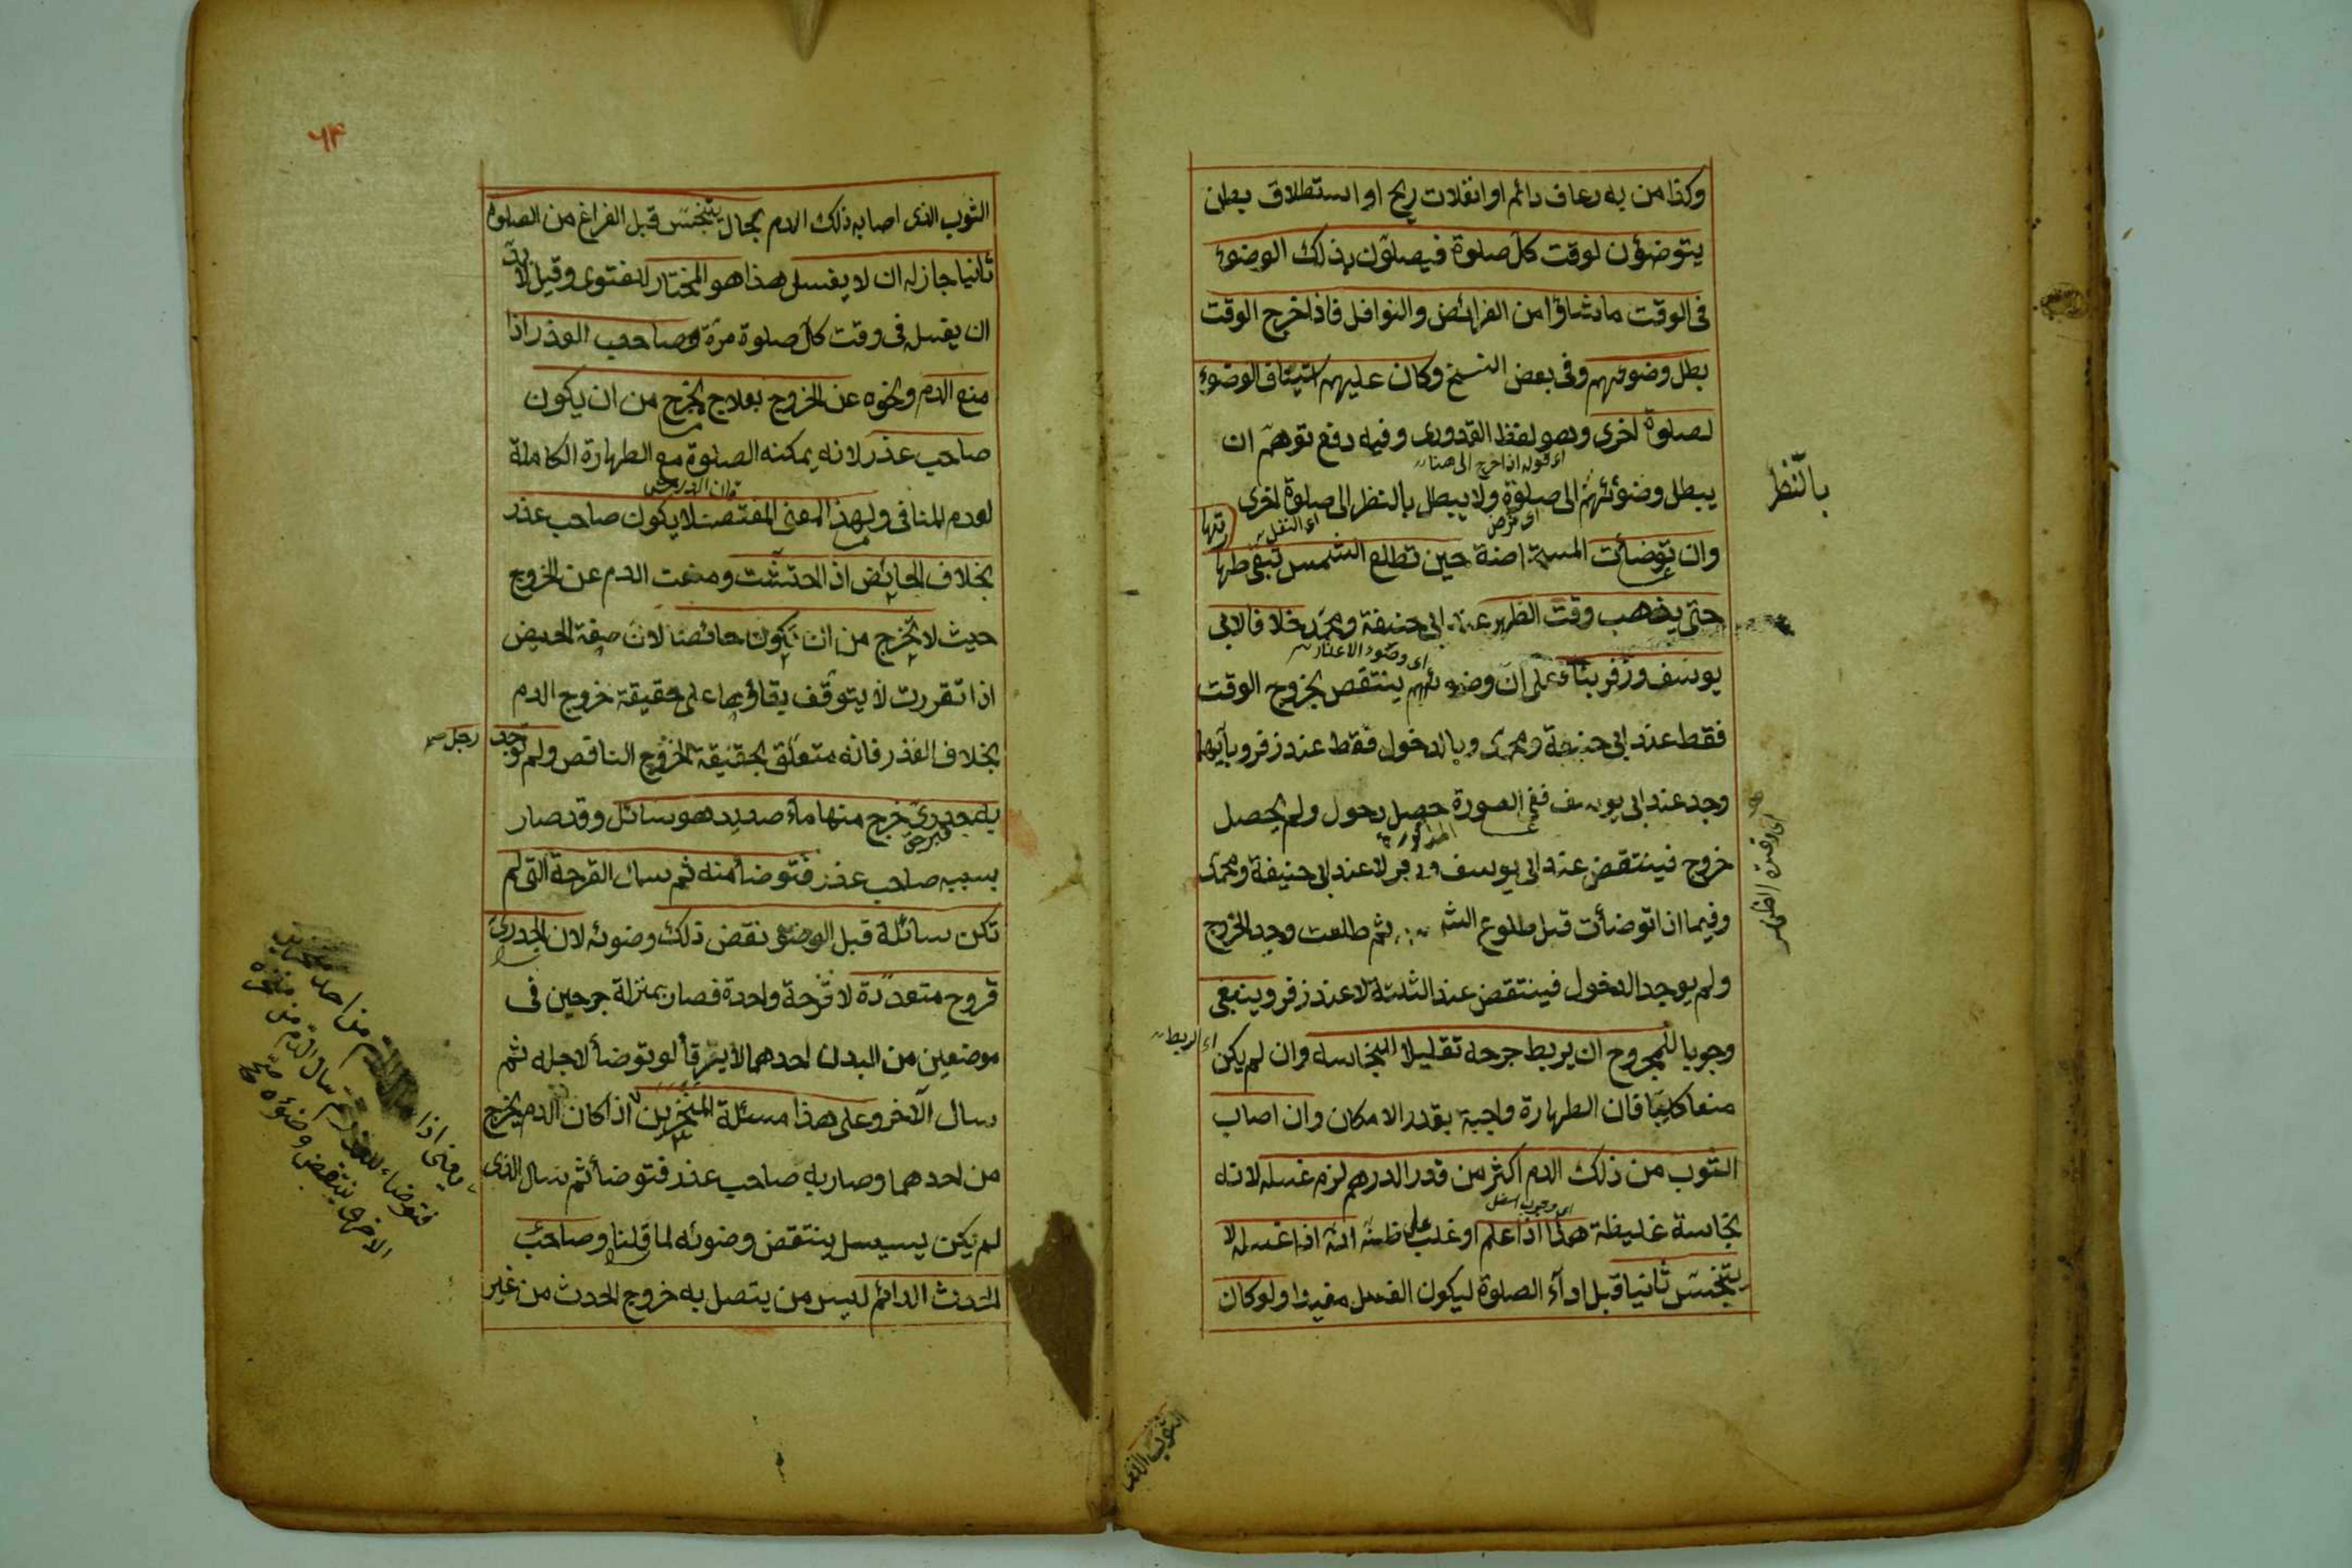 وكذا من به رعاف دائم او انفلات ريح او استطلاق بطن
يتوضؤن لوقت كل صلوة فيصلون بذلك الوضوء
فى الوقت ماشاؤا من الفرائض والنوافل فاذا خرج الوقت
بطل وضوئهم وفى بعض النسخ وكان عليهم استيناف الوضوء
لصلوة اخرى وهو لفظ القدورى وفيه دفع توهم ان
اى قوله اذا خرج الى هنا
يبطل وضوئهم الى صلوة ولا يبطل بالنظر الى صلوة اخرى
بالنظر
اى فرض
اى النفل
وان توضأت المستحاضة حين تطلع الشمس تبقى طهارتها
حتى يذهب وقت الظهر عند ابى حنيفة ومحمد خلافا لابى
اى وضوء الاعذار
يوسف وزفر بناء على ان وضوئهم ينتقض بخروج الوقت
فقط عند ابى حنيفة ومحمد وبالدخول فقط عند زفر وبأيهما
وجد عند ابى يوسف ففى الصورة حصل دخول ولم يحصل
المذكورة
خروج فينتقض عند ابى يوسف وزفر لا عند ابى حنيفة ومحمد
وفيما اذا توضأت قبل طلوع الشمس ثم طلعت وجد الخروج
ولم يوجد الدخول فينتقض عند الثلثة لا عند زفر وينبغى
وجوبا للمجروح ان يربط جرحه تقليلا للنجاسة وان لم يكن
اى الربط
منعا كليا فان الطهارة واجبة بقدر الامكان وان اصاب
الثوب من ذلك الدم اكثر من قدر الدرهم لزم غسله لانه
نجاسة غليظة هذا اذا علم او غلب على ظنه انه اذا غسله لا
يتنجس ثانيا قبل اداء الصلوة ليكون الغسل مفيدا ولو كان
الثوب الذى
٦٤
الثوب الذى اصابه ذلك الدم بحال يتنجس قبل الفراغ من الصلوة
ثانيا جاز له ان لا يغسل هذا هو المختار للفتوى وقيل لا بد
ان يغسل فى وقت كل صلوة مرة وصاحب العذر اذا
منع الدم ونحوه عن الخروج بعلاج يخرج من ان يكون
صاحب عذر لانه يمكنه الصلوة مع الطهارة الكاملة
لعدم المنافى ولهذا المعنى المفتصد لا يكون صاحب عذر
بخلاف الحائض اذا احتشت ومنعت الدم عن الخروج
حيث لا تخرج من ان تكون حائضا لان صفة الحيض
اذا تقررت لا يتوقف بقاؤها على حقيقة خروج الدم
بخلاف العذر فانه متعلق بحقيقة الخروج الناقض ولم توجد
رجل
به جدرى خرج منها ماء صديد هو سائل وقد صار
بسببه صاحب عذر فتوضأ منه ثم سال القرحة التى لم
تكن سائلة قبل الوضوء نقض ذلك وضوئه لان الجدرى
قروح متعددة لا قرحة واحدة فصار بمنزلة جرحين فى
موضعين من البدن احدهما لا يرقأ لو توضأ لاجله ثم
سال الآخر وعلى هذا مسئلة المنخرين اذا كان الدم يخرج
من احدهما وصار به صاحب عذر فتوضأ ثم سال الذى
لم يكن يسيل ينتقض وضوئه لما قلنا وصاحب
الحدث الدائم ليس من يتصل به خروج الحدث من غير